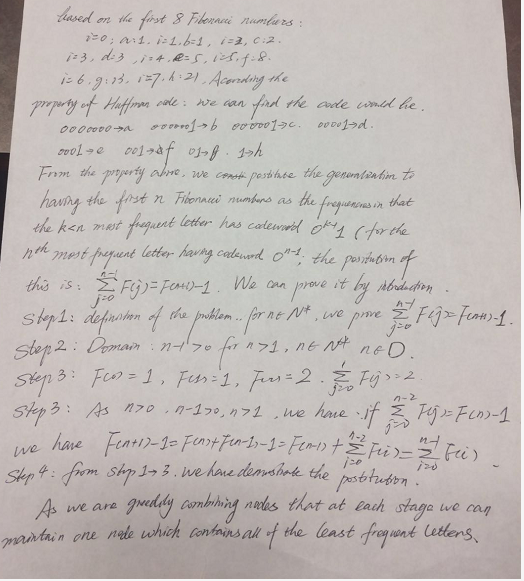 based on the first 8 Fibonacci numbers:
i=0; a:1, i=1, b=1, i=2, c:2.
i=3, d=3, i=4, e=5, i=5, f=8.
i=6, g:13, i=7, h:21, According the
property of Huffman code: we can find the code would be.
0000000→a 0000001→b 000001→c. 00001→d.
0001→e 001→f 01→g. 1→h
From the property above, we postitute the generalization to
having the first n Fibonacci numbers as the frequencies in that
the k<n most frequent letter has codeword 0^{k-1}1 (for the
nth most frequent letter having codeword 0^{n-1}; the postitution of
this is: \sum_{j=0}^{n-1} F(j)=F(n+1)-1. We can prove it by introduction.
Step1: definition of the problem.. for n∈N*, we prove \sum_{j=0}^{n-1} F(j)=F(n+1)-1.
Step2: Domain: n-1>0 for n>1, n∈N* n∈D.
Step3: F(0)=1, F(1)=1, F(2)=2. \sum_{j=0}^{1} F(j)=2
Step3: As n>0, n-1>0, n>1, we have. if \sum_{j=0}^{n-2} F(j)=F(n)-1
we have F(n+1)-1=F(n)+F(n-1)-1=F(n-1)+\sum_{i=0}^{n-2} F(i)=\sum_{i=0}^{n-1} F(i).
Step4: from step 1→3. we have demostrate the postitution.
As we are greedily combining nodes that at each stage we can
maintain one node which contains all of the least frequent letters.